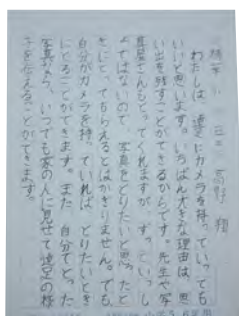 わたしは、遠足にカメラを持っていっても
いいと思います。いちばん大きな理由は、思
い出を残すことができるからです。先生や写
真屋さんもとってくれますが、ずっといっし
ょではないので、写真をとりたいと思ったと
きにとってもらえるとはかぎりません。でも
自分がカメラを持っていれば、とりたいとき
にとることができます。また、自分でとった
写真なら、いつでも家の人に見せて遠足の様
子を伝えることができます。